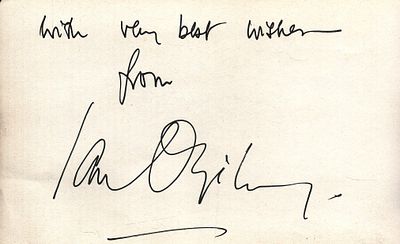 with very best wishes
from
Ian Ogilvy.